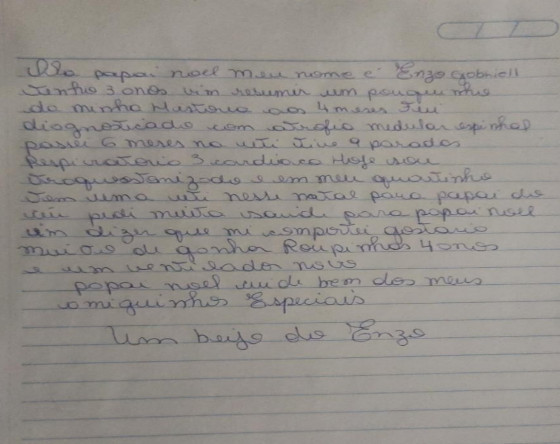 Ola papai noel meu nome é Enzo gabriell
tenho 3 anos vim resumir um pouquinho
da minha Historia aos 4 meses fui
diagnosticado com atrofia medular espinhal
passei 6 meses na uti tive 9 paradas
Respiratoria 3 cardiaca Hoje sou
traqueostomizado e em meu quartinho
tem uma uti nesse natal para papai do
ceu pedi muita saude para papai noel
vim dizer que mi comportei gostaria
muito de ganhar Roupinhas 4 anos
e um ventilador novo
papai noel cuide bem dos meus
amiguinhos Especiais
Um beijo do Enzo